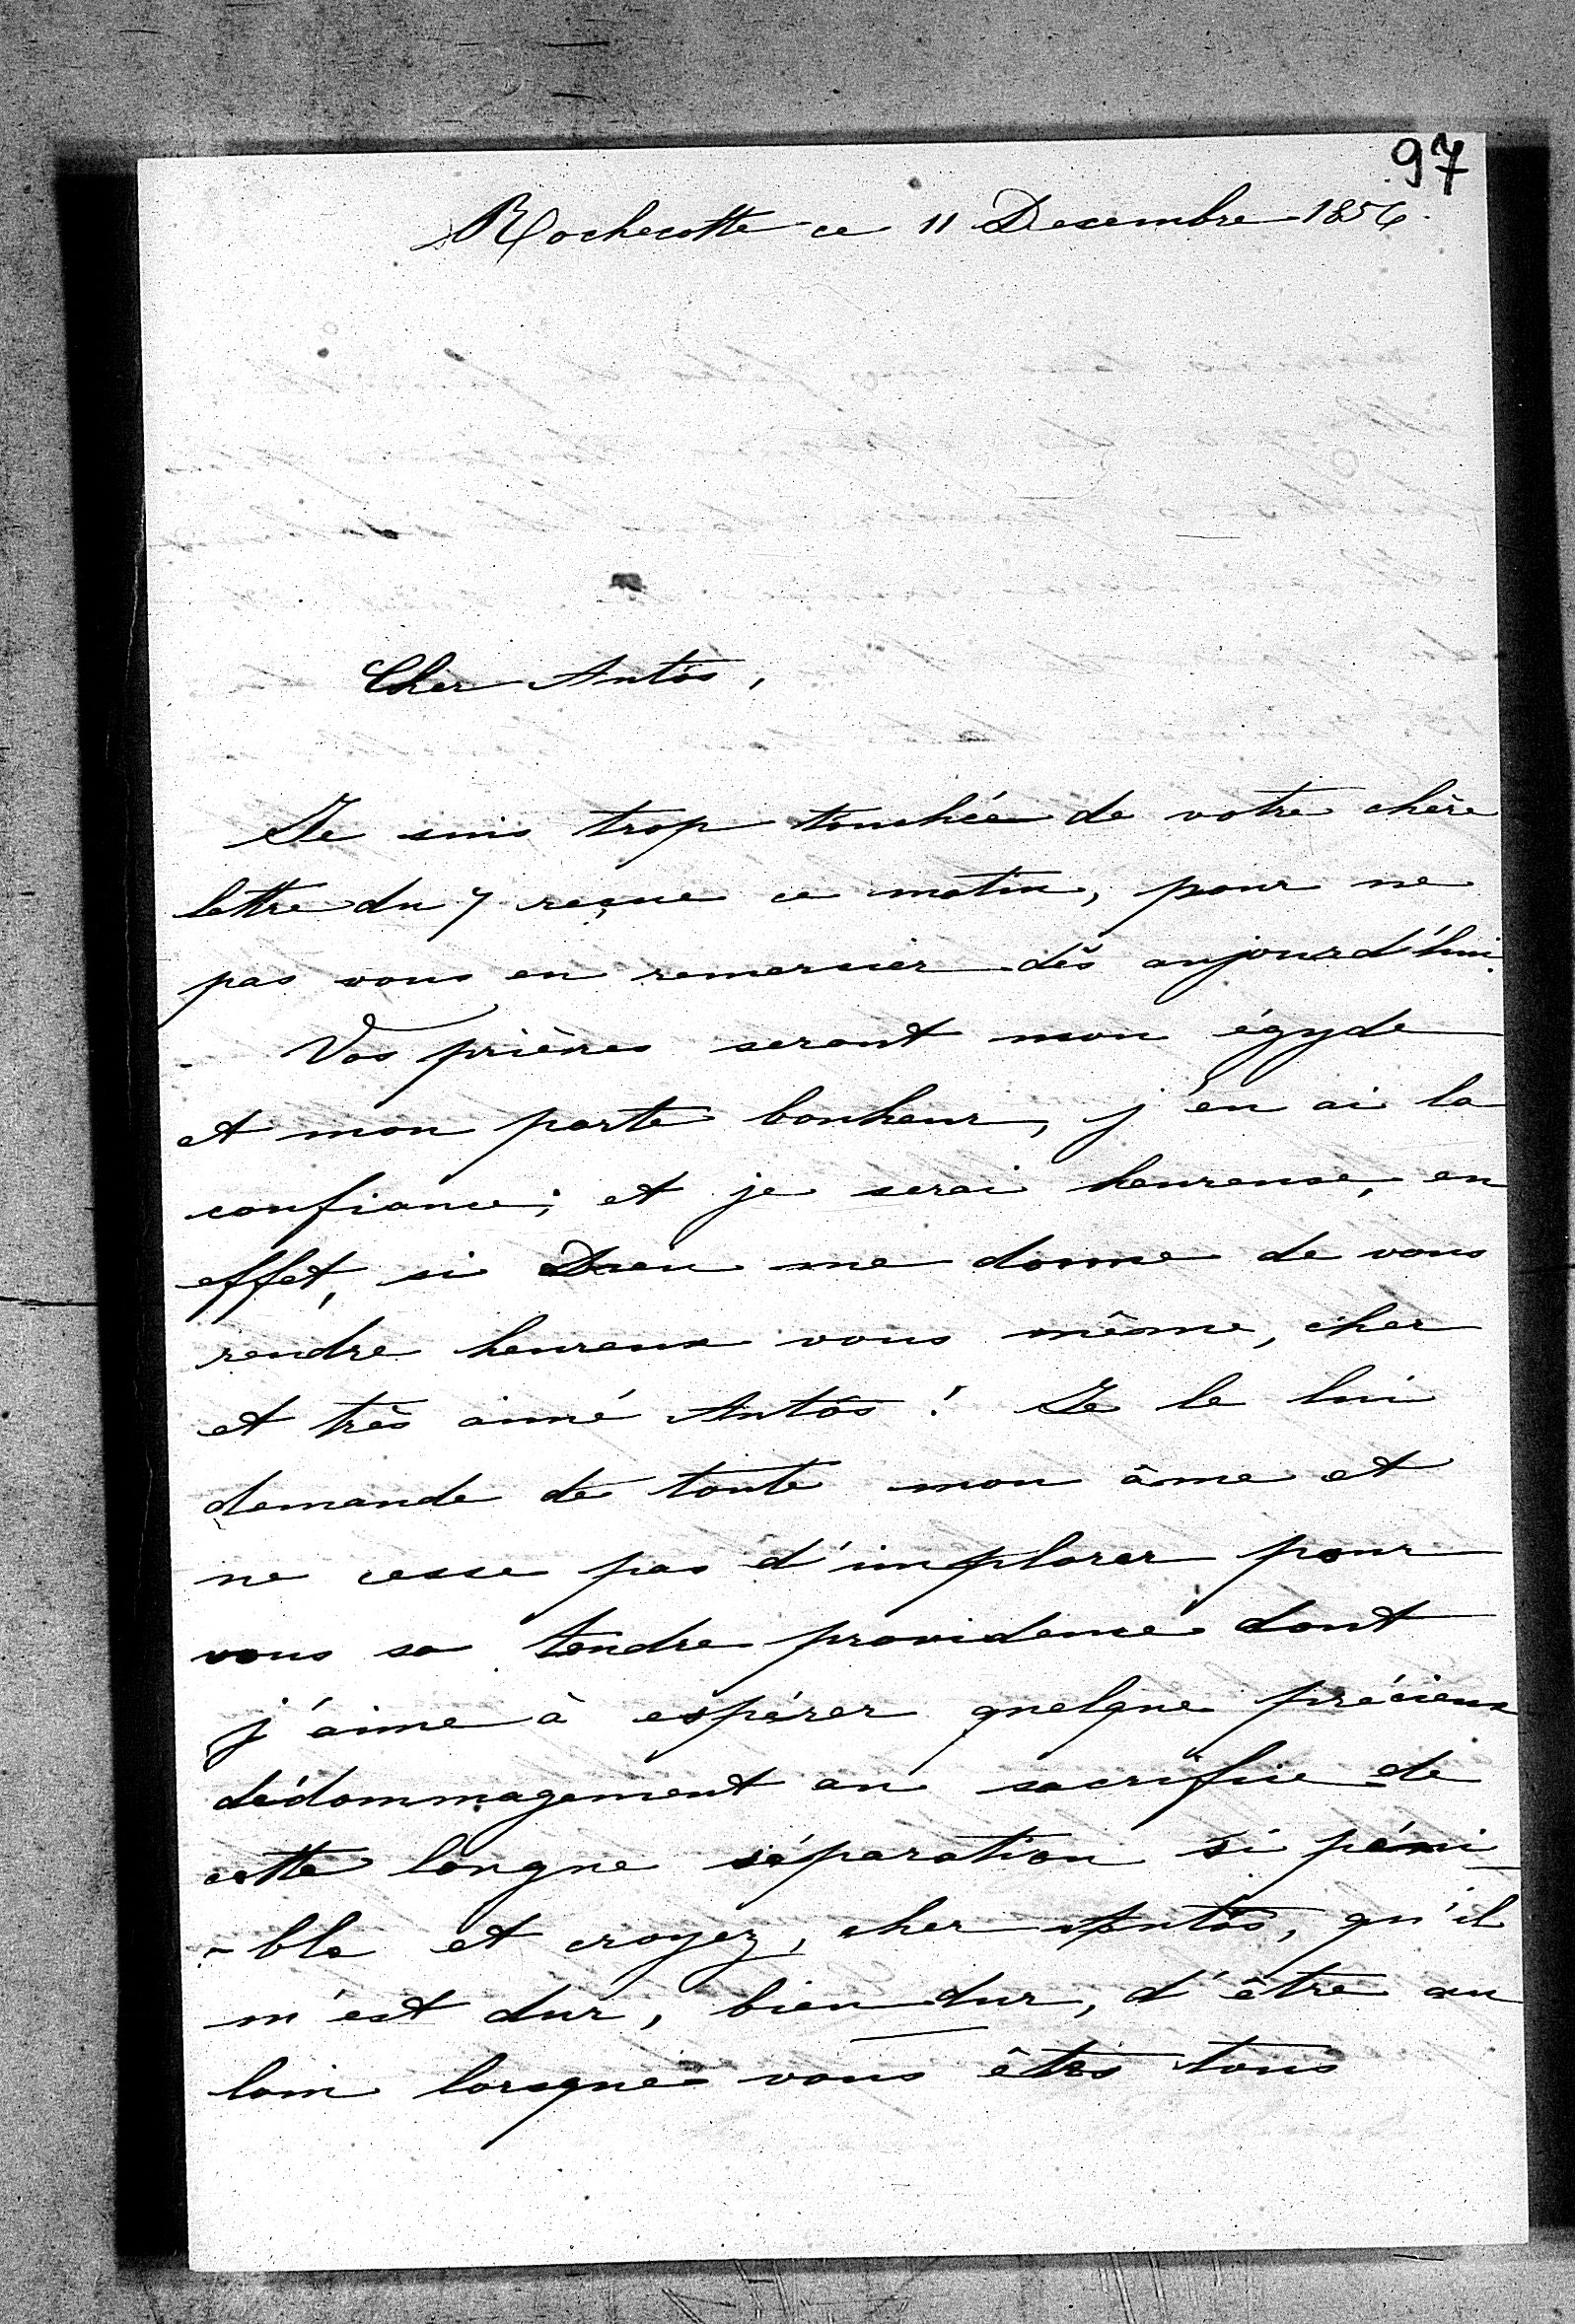 97
Rochecotte ce 11 Decembre 1856.
Cher Antós,
Je suis trop touchée de votre chère
lettre du 7 reçue ce matin, pour ne
pas vous en remercier dès aujourd'hui.
- Vos prières seront mon égyde
et mon porte bonheur, j'en ai la
confiance; et je serai heureuse, en
effet, si Dieu me donne de vous
rendre heureux vous même, cher
et très aimé Antós! Je le lui
demande de toute mon âme et
ne cesse pas d'implorer pour
vous sa tendre providence dont
j'aime à espérer quelque précieux
dédommagement au sacrifice de
cette longue séparation si péni-
-ble et croyez, cher Antós, qu'il
m'est dur, bien dur, d'être au
loin lorsque vous êtes tous